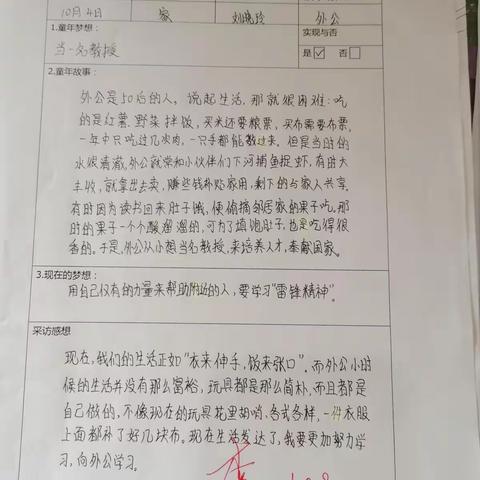 10月4日 家 刘晓玲 外公
1.童年梦想： 实现与否
当一名教授 是☑ 否□
2.童年故事：
外公是50后的人，说起生活，那就很困难：吃
的是红薯、野菜拌饭，买米还要粮票，买布需要布票，
一年中只吃过几次肉，一只手都能数过来。但是当时的
水很清澈，外公就常和小伙伴们下河捕鱼捉虾，有时大
丰收，就拿出去卖，赚些钱补贴家用，剩下的与家人共享。
有时因为读书回来肚子饿，便偷摘邻居家的果子吃。那
时的果子一个个酸溜溜的，可为了填饱肚子，也是吃得很
香的。于是，外公从小想当名教授，来培养人才，奉献国家。
3.现在的梦想：
用自己仅有的力量来帮助附近的人，要学习“雷锋精神”。
采访感想
现在，我们的生活正如“衣来伸手，饭来张口”。而外公小时
候的生活并没有那么富裕，玩具都是那么简朴，而且都是
自己做的，不像现在的玩具花里胡哨、各式各样，一件衣服
上面都补了好几块布。现在生活发达了，我要更加努力学
习，向外公学习。